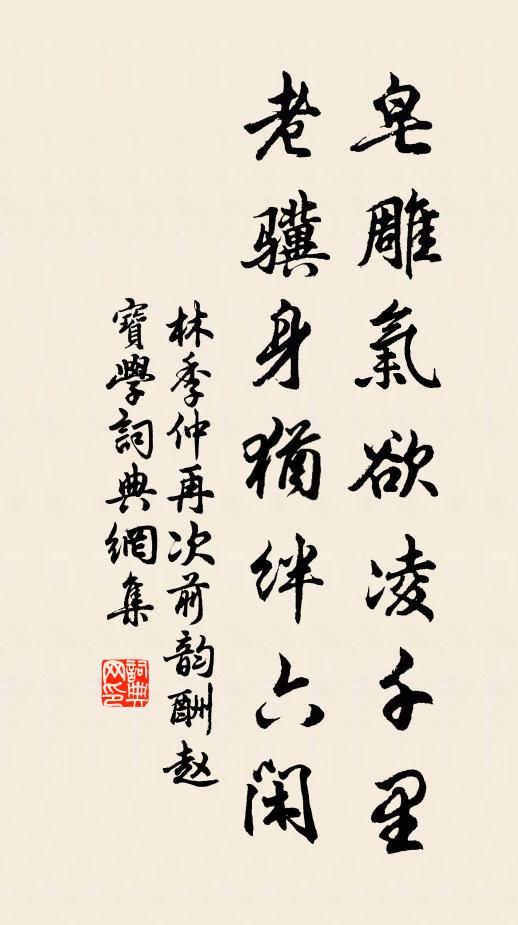 皂雕氣欲凌千里
老驥身猶絆六閑
林季仲再次前韵酬赵
寶學詞典網集
詞典网印